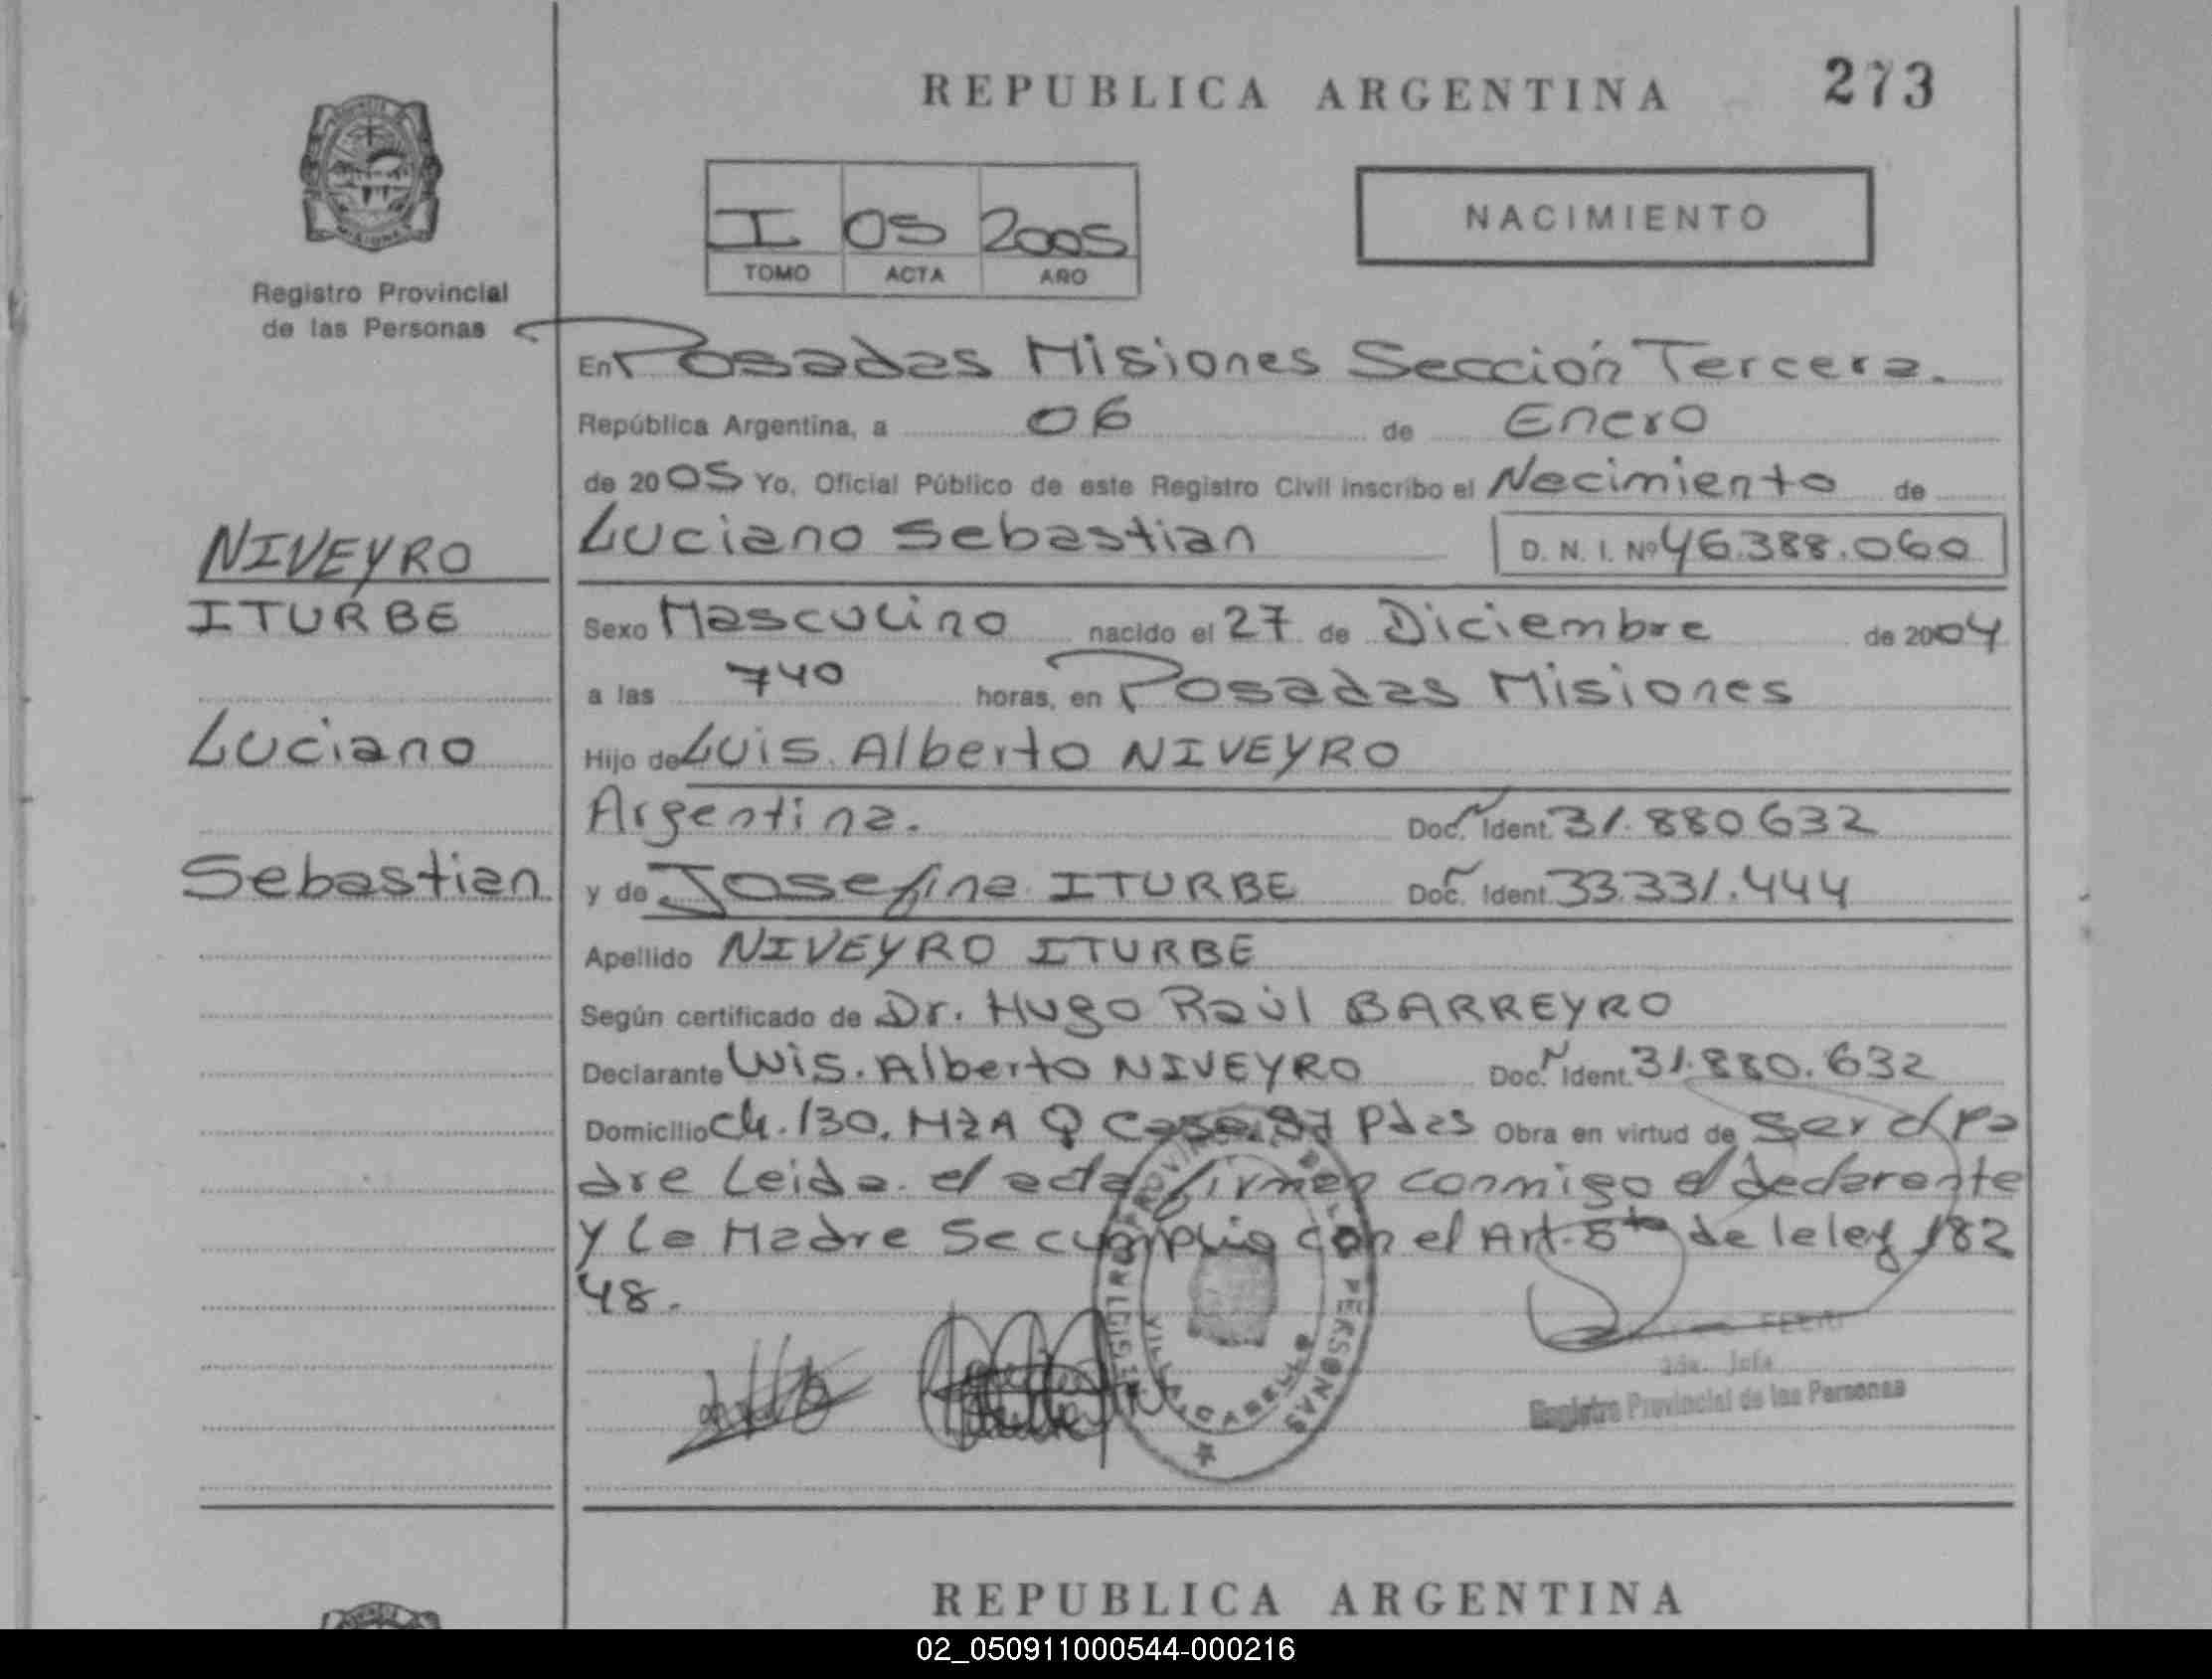 REPUBLICA ARGENTINA 273
I 05 2005
TOMO ACTA AÑO
NACIMIENTO
Registro Provincial
de las Personas
En Posadas Misiones Sección Tercera.
República Argentina, a 06 de Enero
de 2005 Yo, Oficial Público de este Registro Civil inscribo el Nacimiento de
Luciano Sebastian D. N. I. Nº 46.388.060
NIVEYRO
ITURBE
Luciano
Sebastian
Sexo Masculino nacido el 27 de Diciembre de 2004
a las 740 horas, en Posadas Misiones
Hijo de Luis. Alberto NIVEYRO
Argentina. Doc. Ident. 31.880632
y de Josefina ITURBE Doc. Ident. 33.331.444
Apellido NIVEYRO ITURBE
Según certificado de Dr. Hugo Raúl BARREYRO
Declarante Luis. Alberto NIVEYRO Doc. Ident. 31.880.632
Domicilio Ch. 130. MZA Q Casa Pdas Obra en virtud de Ser el Pa
dre Leida el acta firman conmigo el declarante
y la Madre Se cumplio con el Art. 5to de la ley 182
48.
REGISTRO PROVINCIAL DE LAS PERSONAS
VILLA CABELLO
Jefa
Registro Provincial de las Personas
REPUBLICA ARGENTINA
02_050911000544-000216